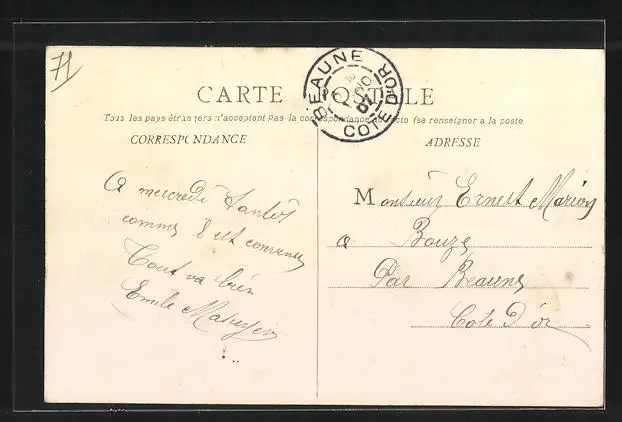 71
BEAUNE
COTE D'OR
CARTE POSTALE
Tous les pays étrangers n'acceptent pas la correspondance au recto (se renseigner a la poste
CORRESPONDANCE
ADRESSE
A mercredi Tantôt
comme il est convenu
Tout va bien
Emile
Monsieur Ernest Marion
a Bouze
Par Beaune
Cote d'or